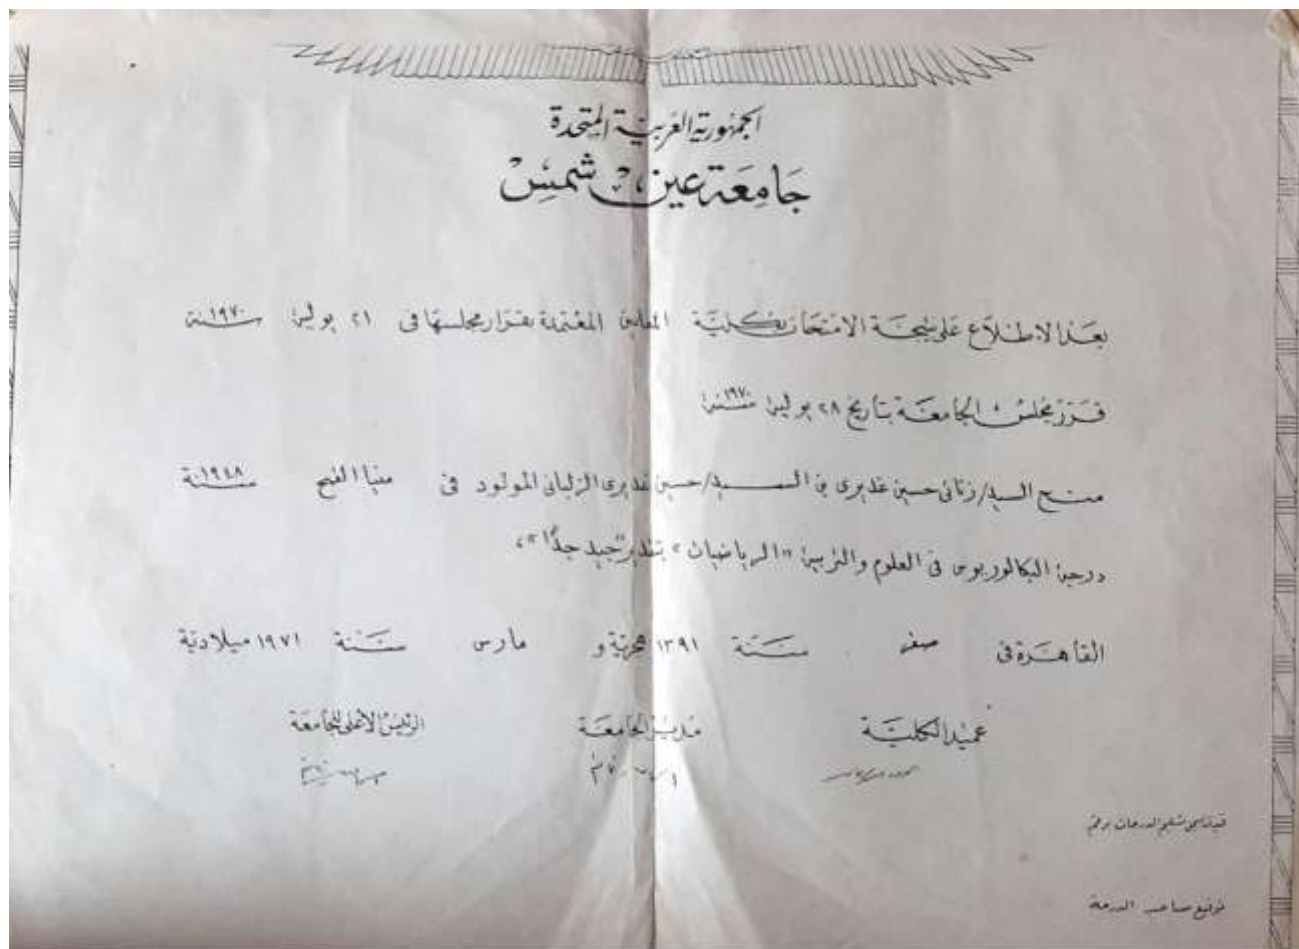 الجمهورية العربية المتحدة
جامعة عين شمس
بعد الاطلاع على نتيجة الامتحان بكلية المعلمين المعتمدة بقرار مجلسها في ٢١ يولية سنة ١٩٧٠
قرر مجلس الجامعة بتاريخ ٢٨ يولية سنة ١٩٧٠
منح السيد/ حسين غديرى بن السيد/ حسين غديرى الزلبانى المولود فى منيا القمح سنة ١٩٤٨
درجة البكالوريوس فى العلوم والتربية "الرياضيات" بتقدير "جيد جدًا"،
القاهرة فى صفر سنة ١٣٩١ هجرية و مارس سنة ١٩٧١ ميلادية
عميد الكلية مدير الجامعة الرئيس الأعلى للجامعة
الدرجات برقم
توقيع صاحب الدرجة